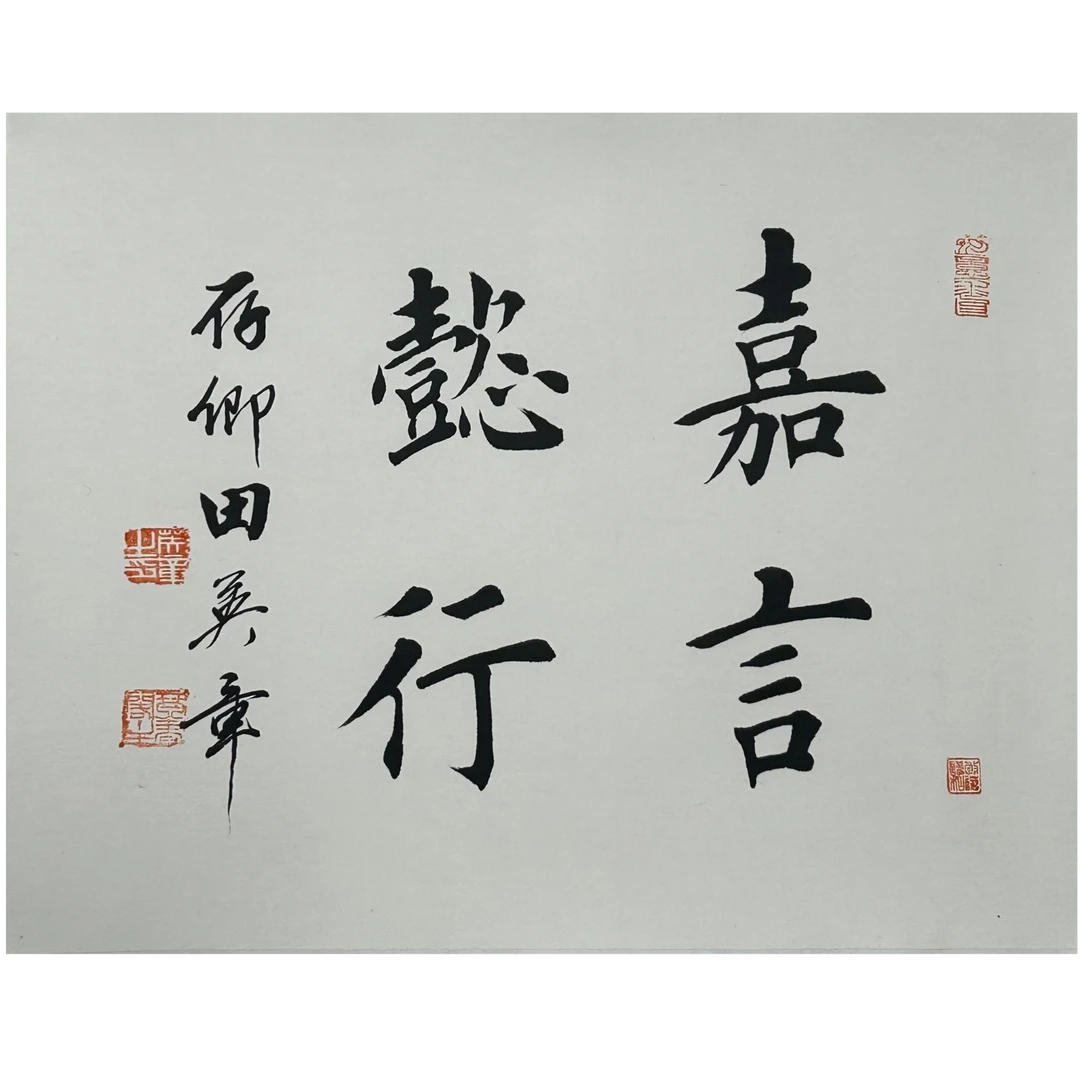 嘉言
懿行
存卿田英章